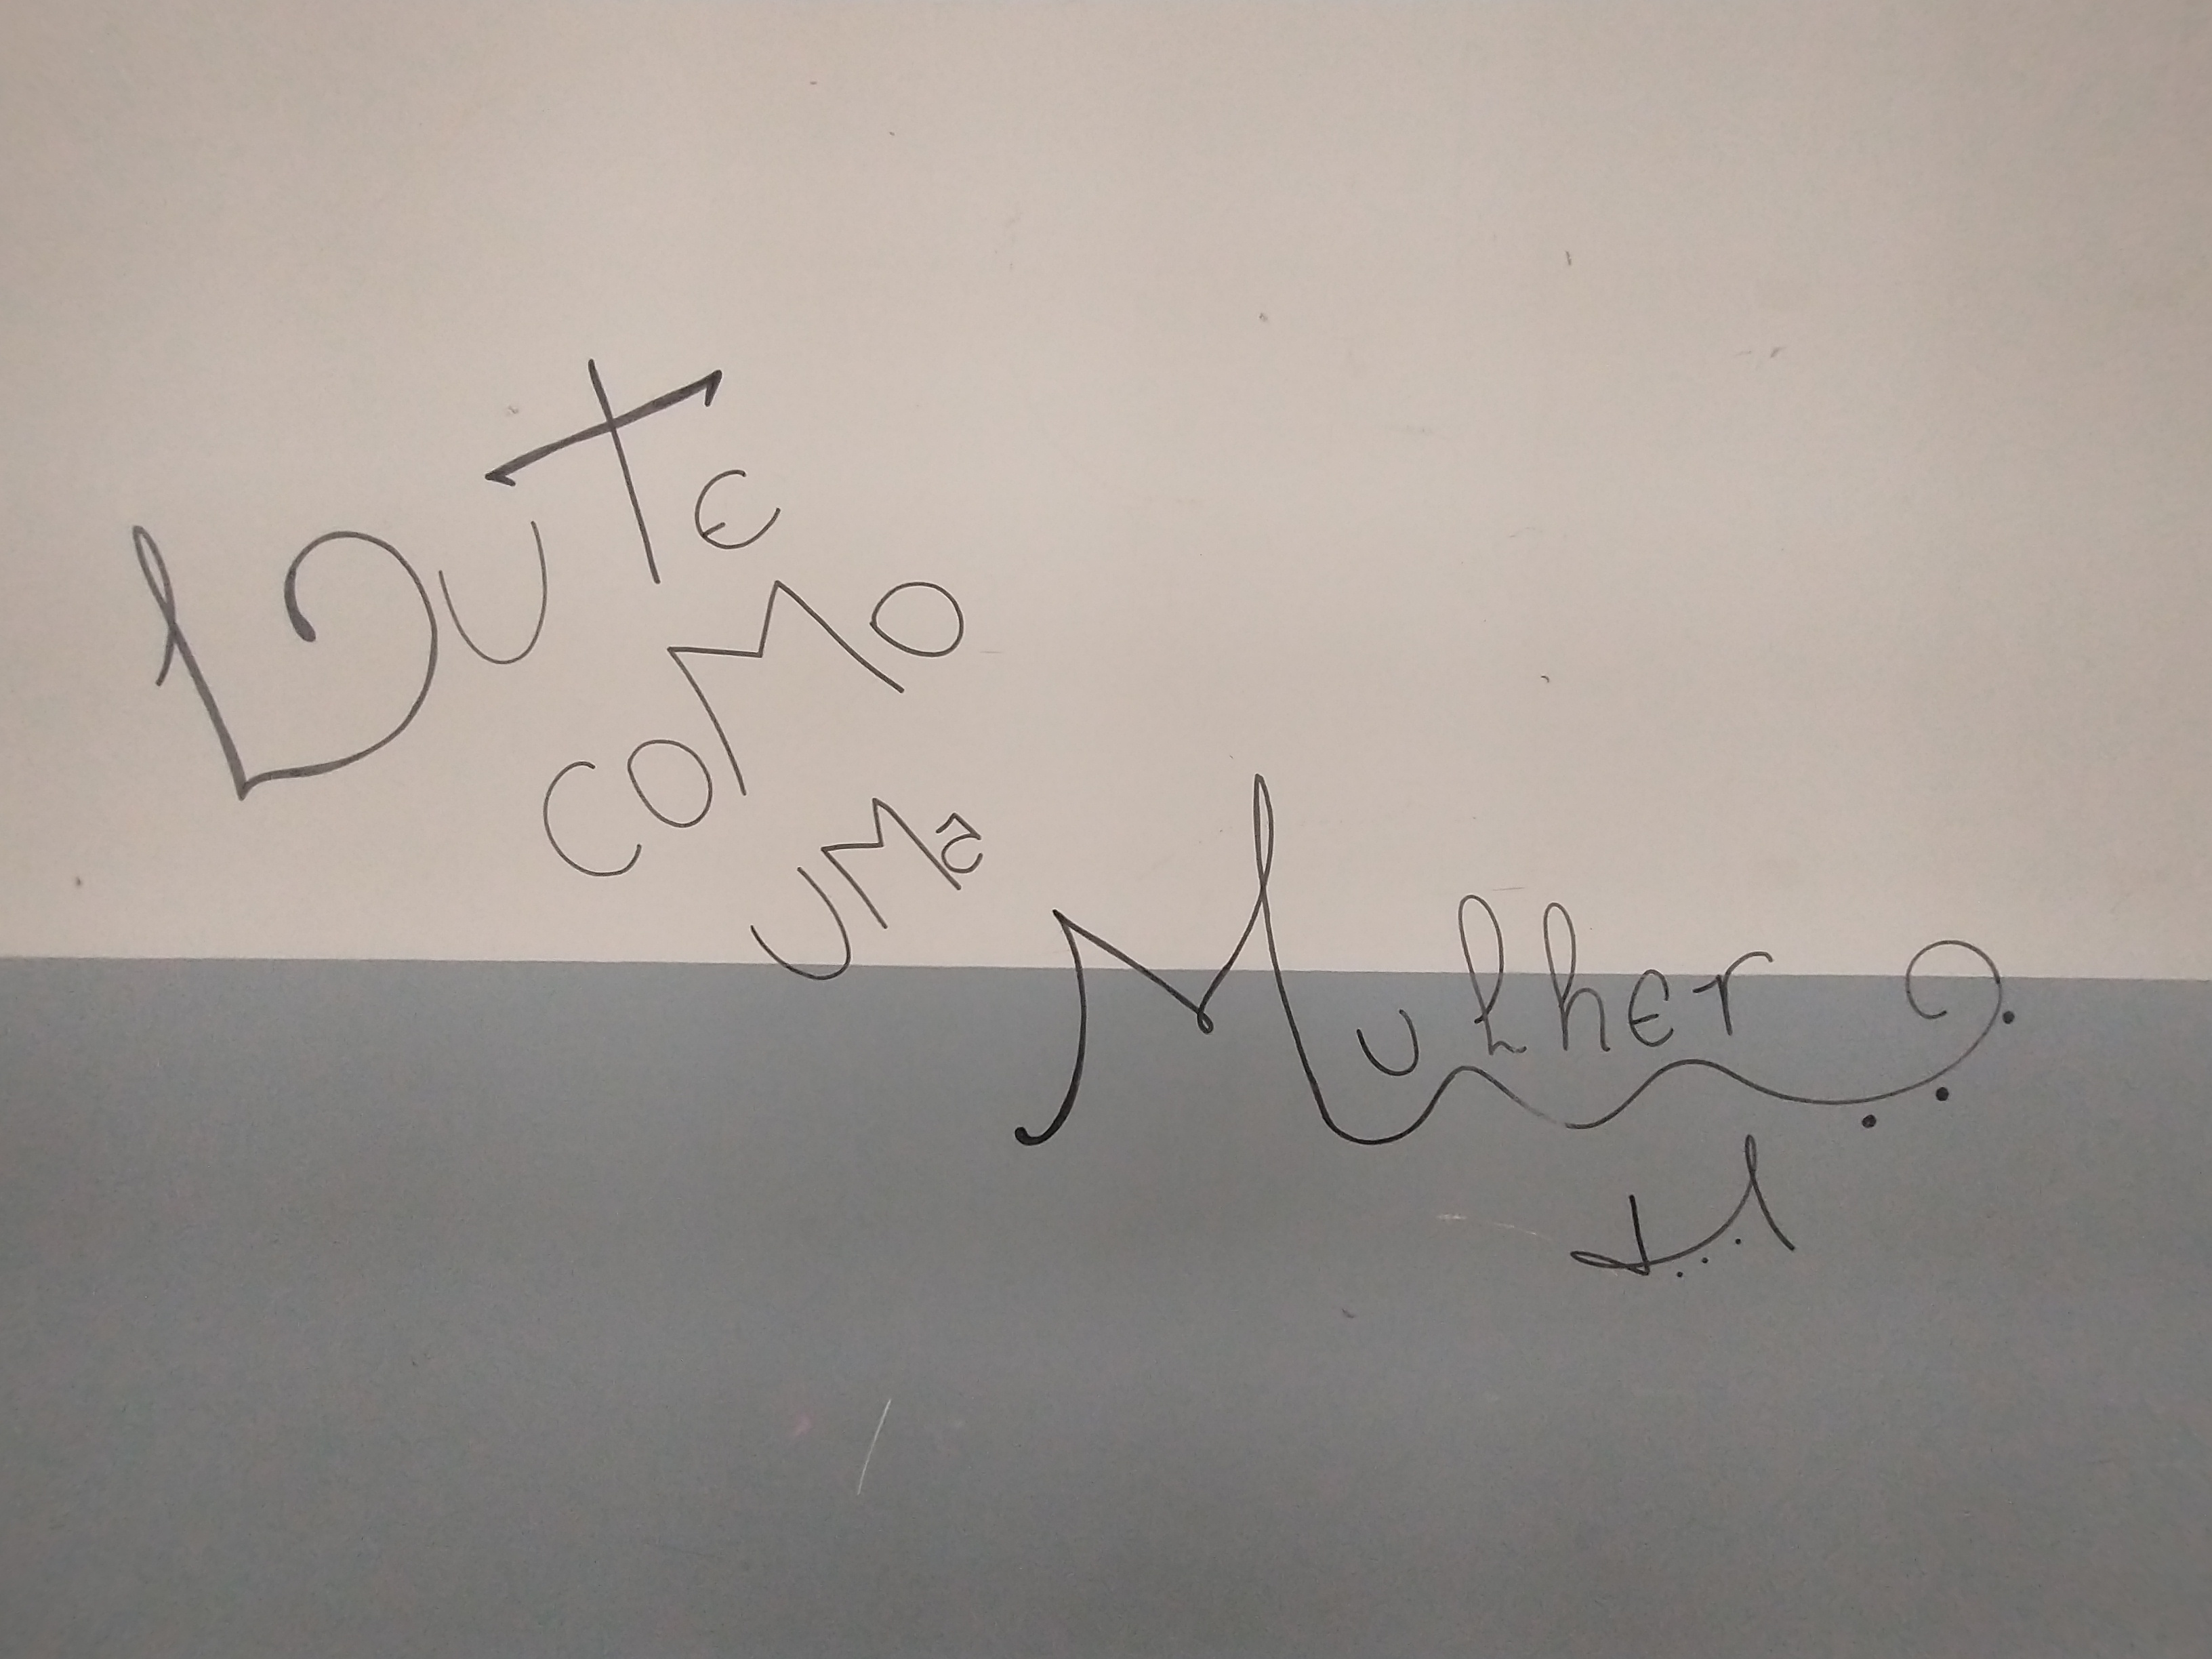 LUTE
COMO
UMa
Mulher